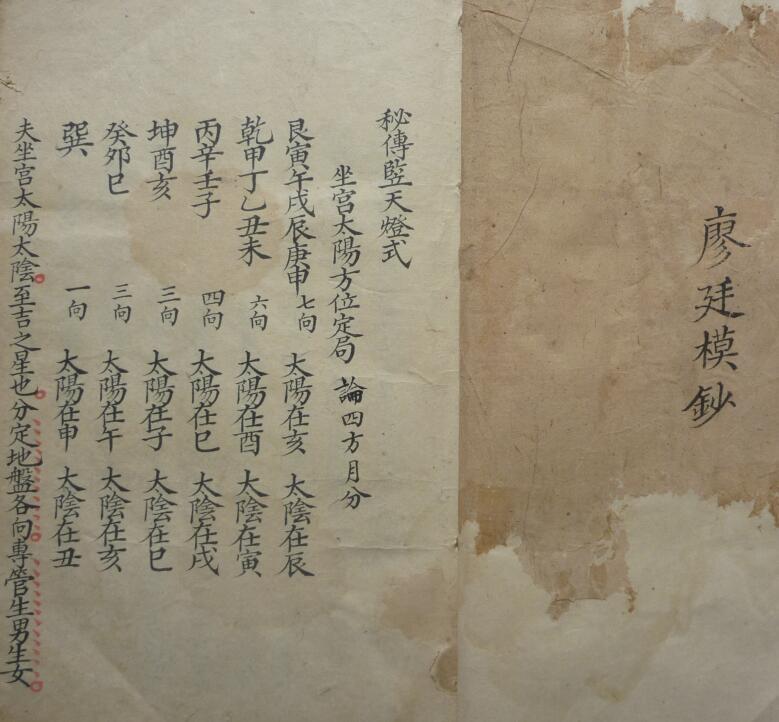 廖廷模鈔
秘傳竖天燈式
坐宫太陽方位定局 論四方月分
艮寅午戌辰庚申 七向 太陽在亥 太陰在辰
乾甲丁乙丑未 六向 太陽在酉 太陰在寅
丙辛壬子 四向 太陽在巳 太陰在戌
坤酉亥 三向 太陽在子 太陰在巳
癸夘巳 三向 太陽在午 太陰在亥
巽 一向 太陽在申 太陰在丑
夫坐宫太陽太陰至吉之星也分定地盤各向專管生男生女